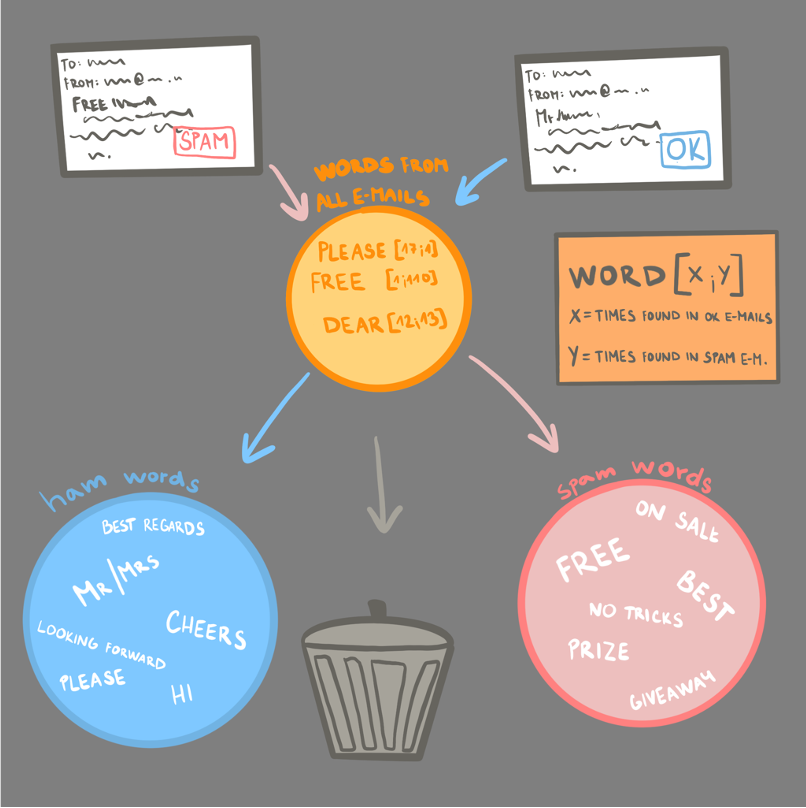 TO:
FROM: @
FREE
SPAM
TO:
FROM: @
Mr
OK
WORDS FROM
ALL E-MAILS
PLEASE [17;1]
FREE [1;110]
DEAR [12;13]
WORD [X;Y]
X = TIMES FOUND IN OK E-MAILS
Y = TIMES FOUND IN SPAM E-M.
ham words
BEST REGARDS
MR/MRS
CHEERS
LOOKING FORWARD
PLEASE
HI
spam words
ON SALE
FREE
BEST
NO TRICKS
PRIZE
GIVEAWAY